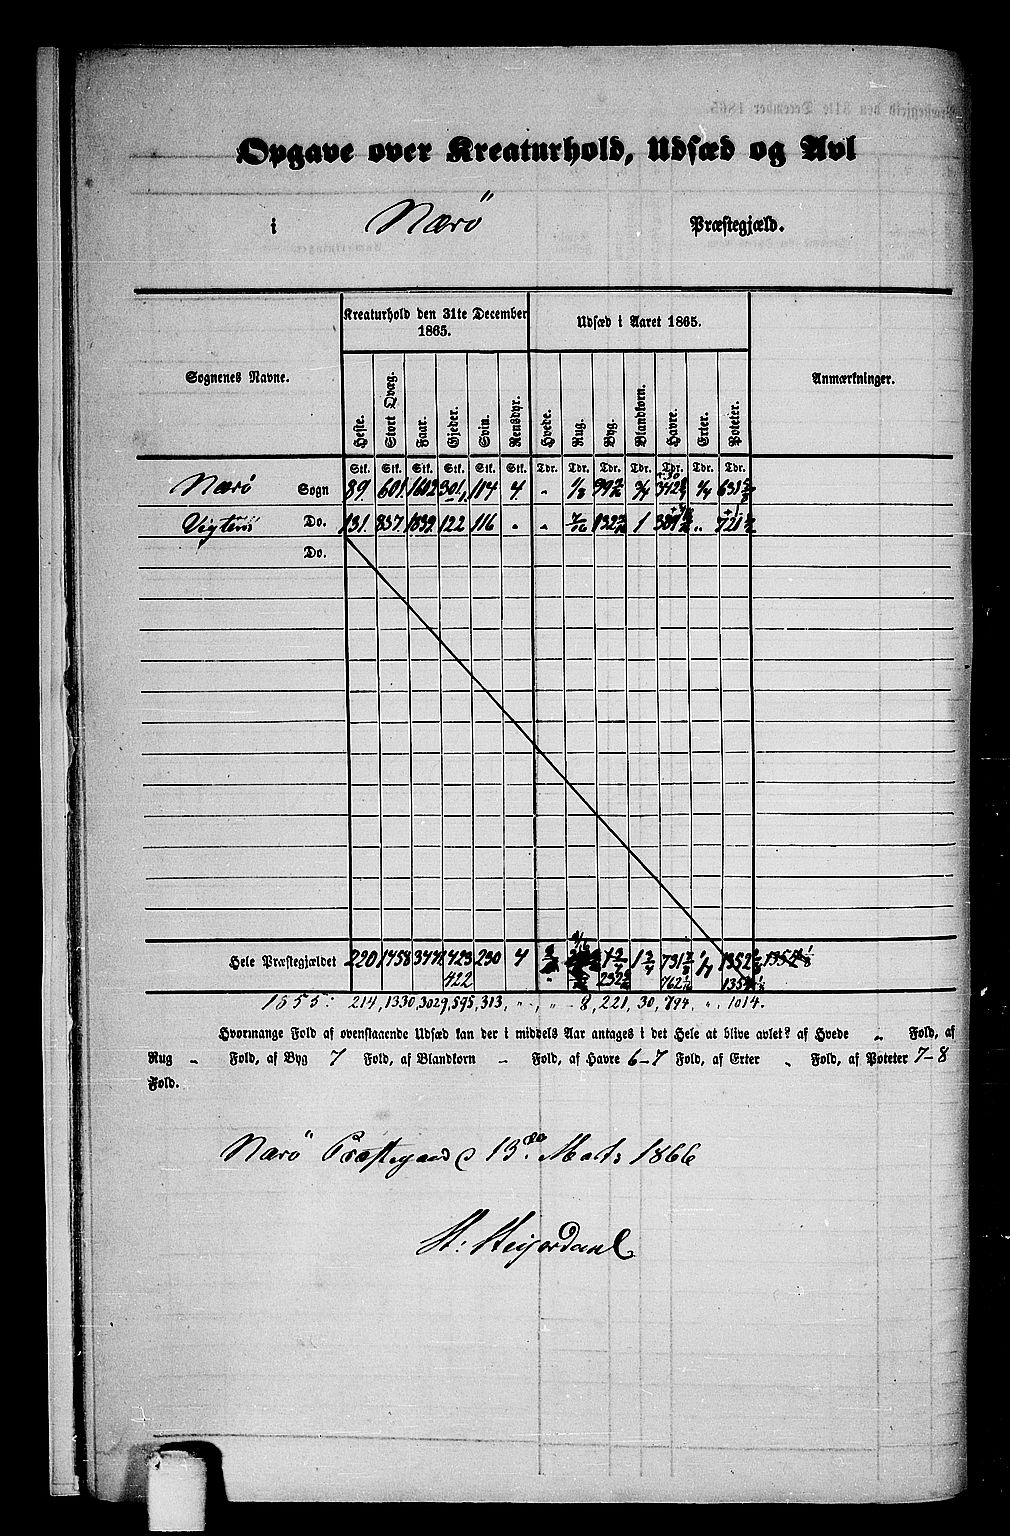 Opgave over Kreaturhold, Udsæd og Avl
i Nærö Præstegjæld.
Kreaturhold den 31te December 1865.
Udsæd i Aaret 1865.
Sognenes Navne.
Anmærkninger.
Heste. Stort Qvæg. Faar. Gjeder. Svin. Rensdyr. Hvede. Rug. Byg. Blandkorn. Havre. Erter. Poteter.
Stk. Stk. Stk. Stk. Stk. Stk. Tdr. Tdr. Tdr. Tdr. Tdr. Tdr. Tdr.
Nærö Sogn 89. 601. 1602 301 114 4. " 1/8 3/4 1/4 631 5/8
Do. 131. 857. 122 116 " " 7/16 1 " 721
Do.
Hele Præstegjældet 220 1458 423 230 4 1 3/4 731 1352
422 232 762 1354
1555: 214, 1330, 3029, 595, 313, " " 8, 221, 30, 894, " 1014.
Hvormange Fold af ovenstaaende Udsæd kan der i middels Aar antages i det Hele at blive avlet? af Hvede " Fold, af
Rug " Fold, af Byg 7 Fold, af Blandkorn " Fold, af Havre 6–7 Fold, af Erter " Fold, af Poteter 7–8
Fold.
Nærö Præstegaard 13de Marts 1866